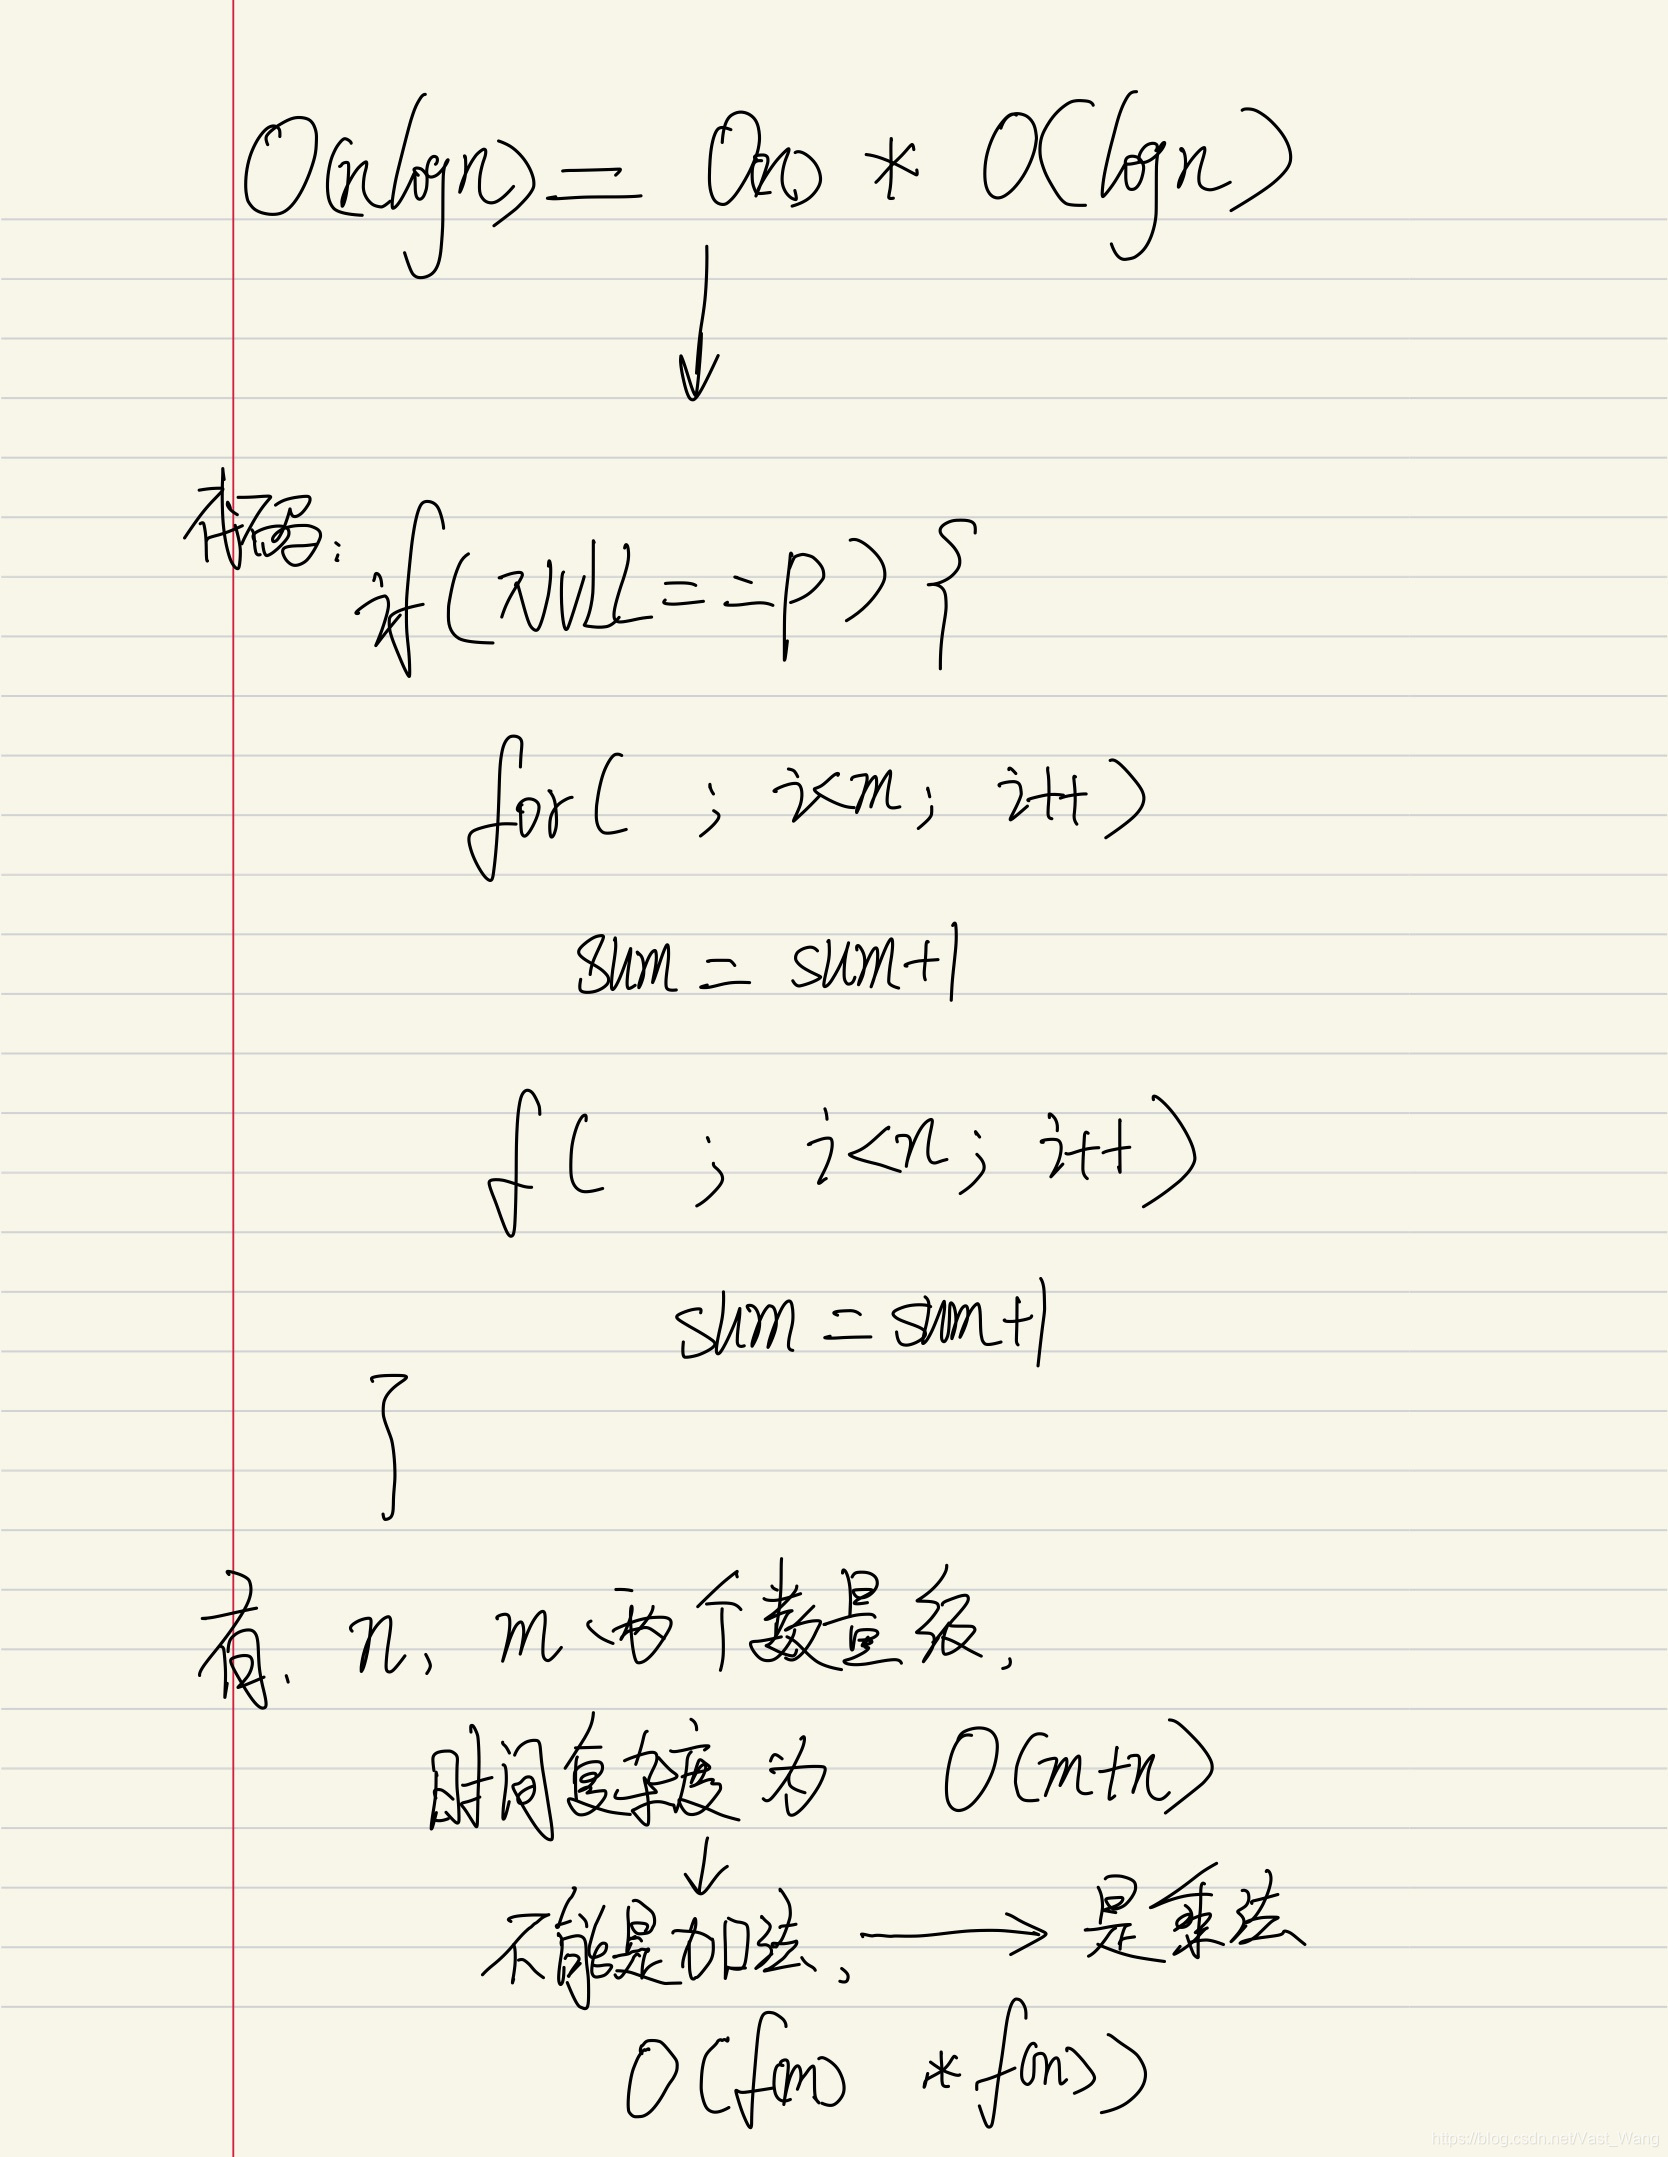 O(nlogn) = O(n) * O(logn)
代码:
if(NULL==p){
for( ; i<m; i++)
sum = sum+1
f( ; i<n; i++)
sum = sum+1
}
有. n, m 两个数量级,
时间复杂度为 O(m+n)
不能是加法, → 是乘法
O(f(m) * f(n))
https://blog.csdn.net/Vast_Wang